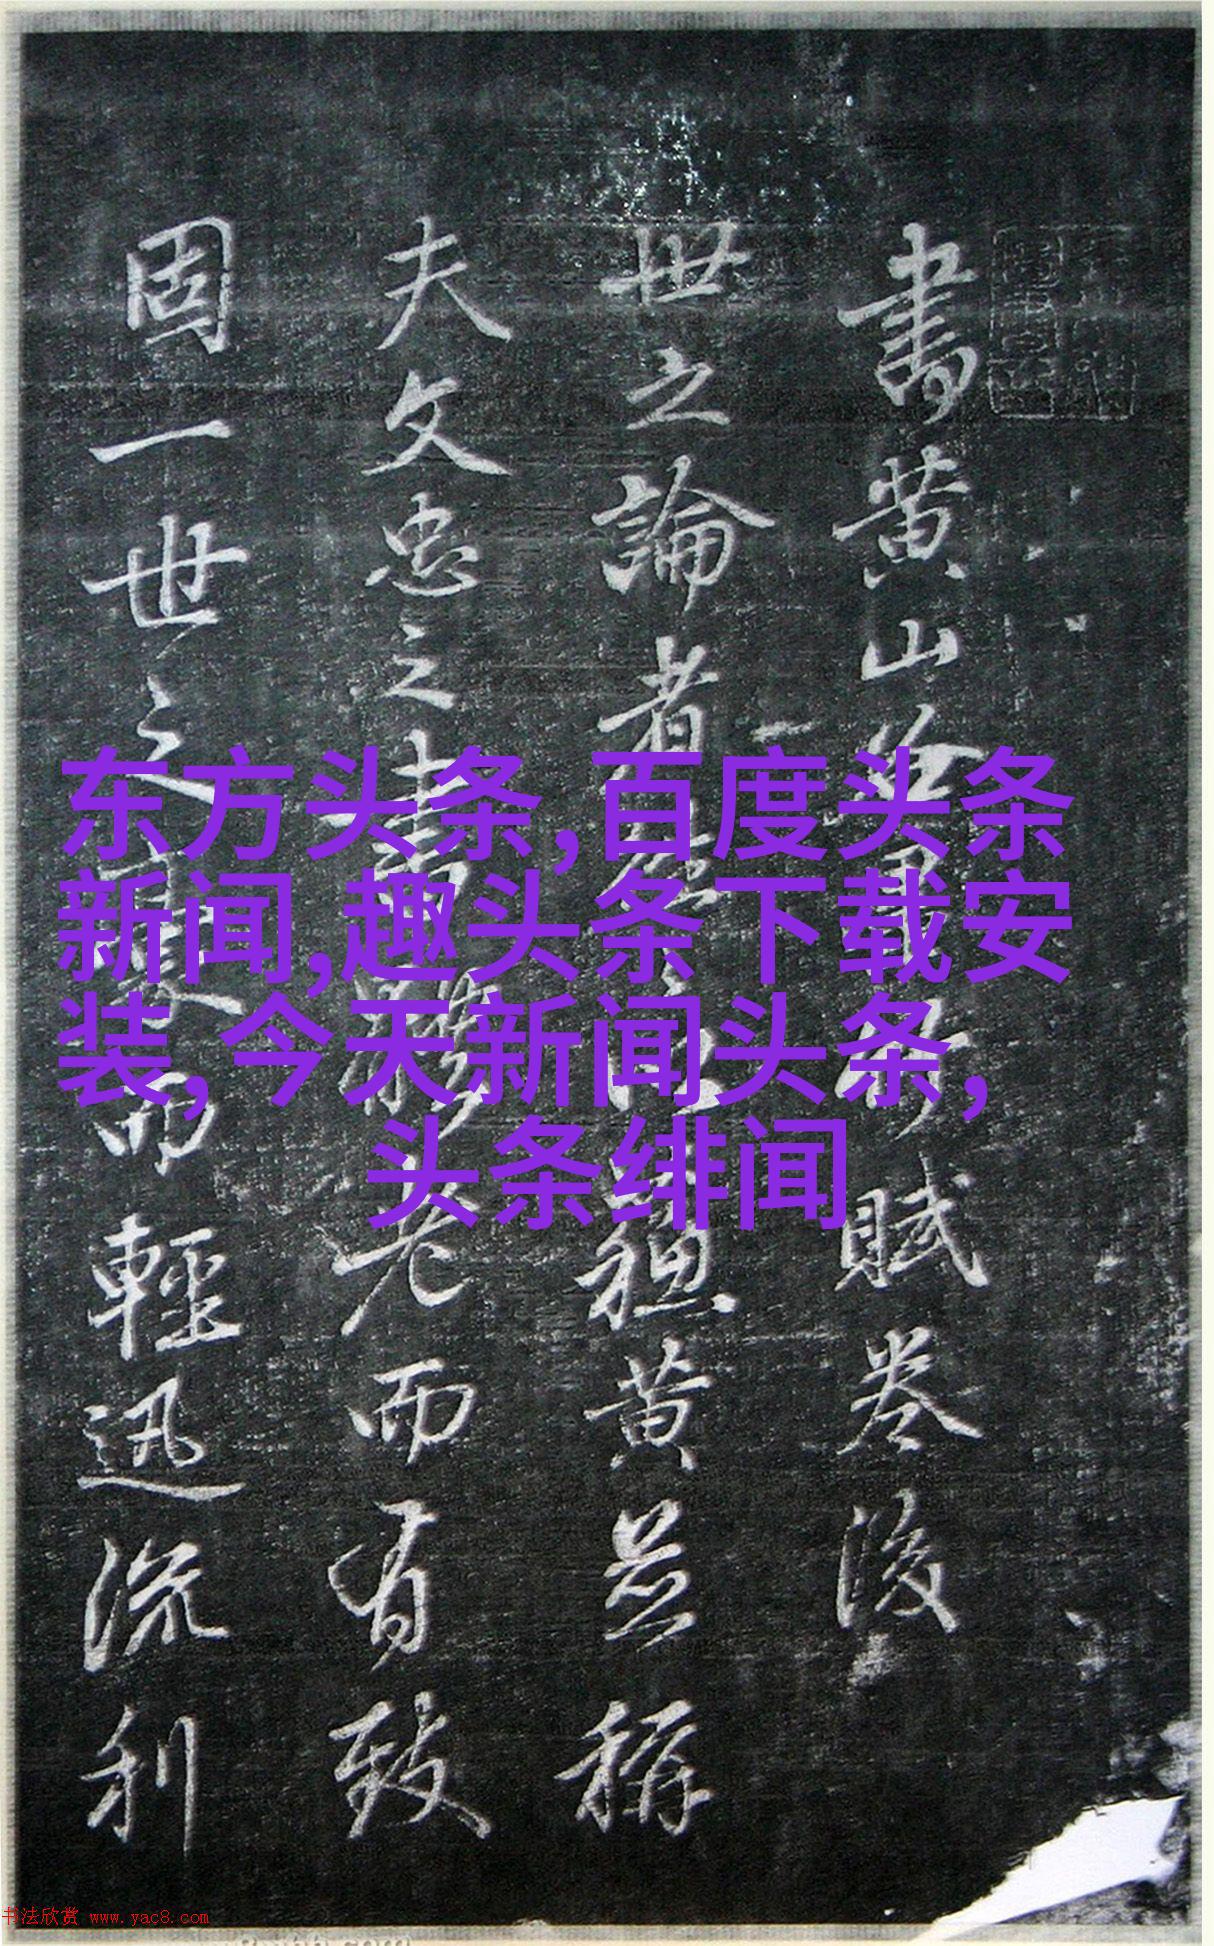 書黄山谷賦卷後
世之論者黄並稱
夫文忠之書老而有致
固一世之而輕迅流利
东方头条,百度头条
新闻,趣头条下载安
装,今天新闻头条,
头条绯闻
书法欣赏 www.yac8.com